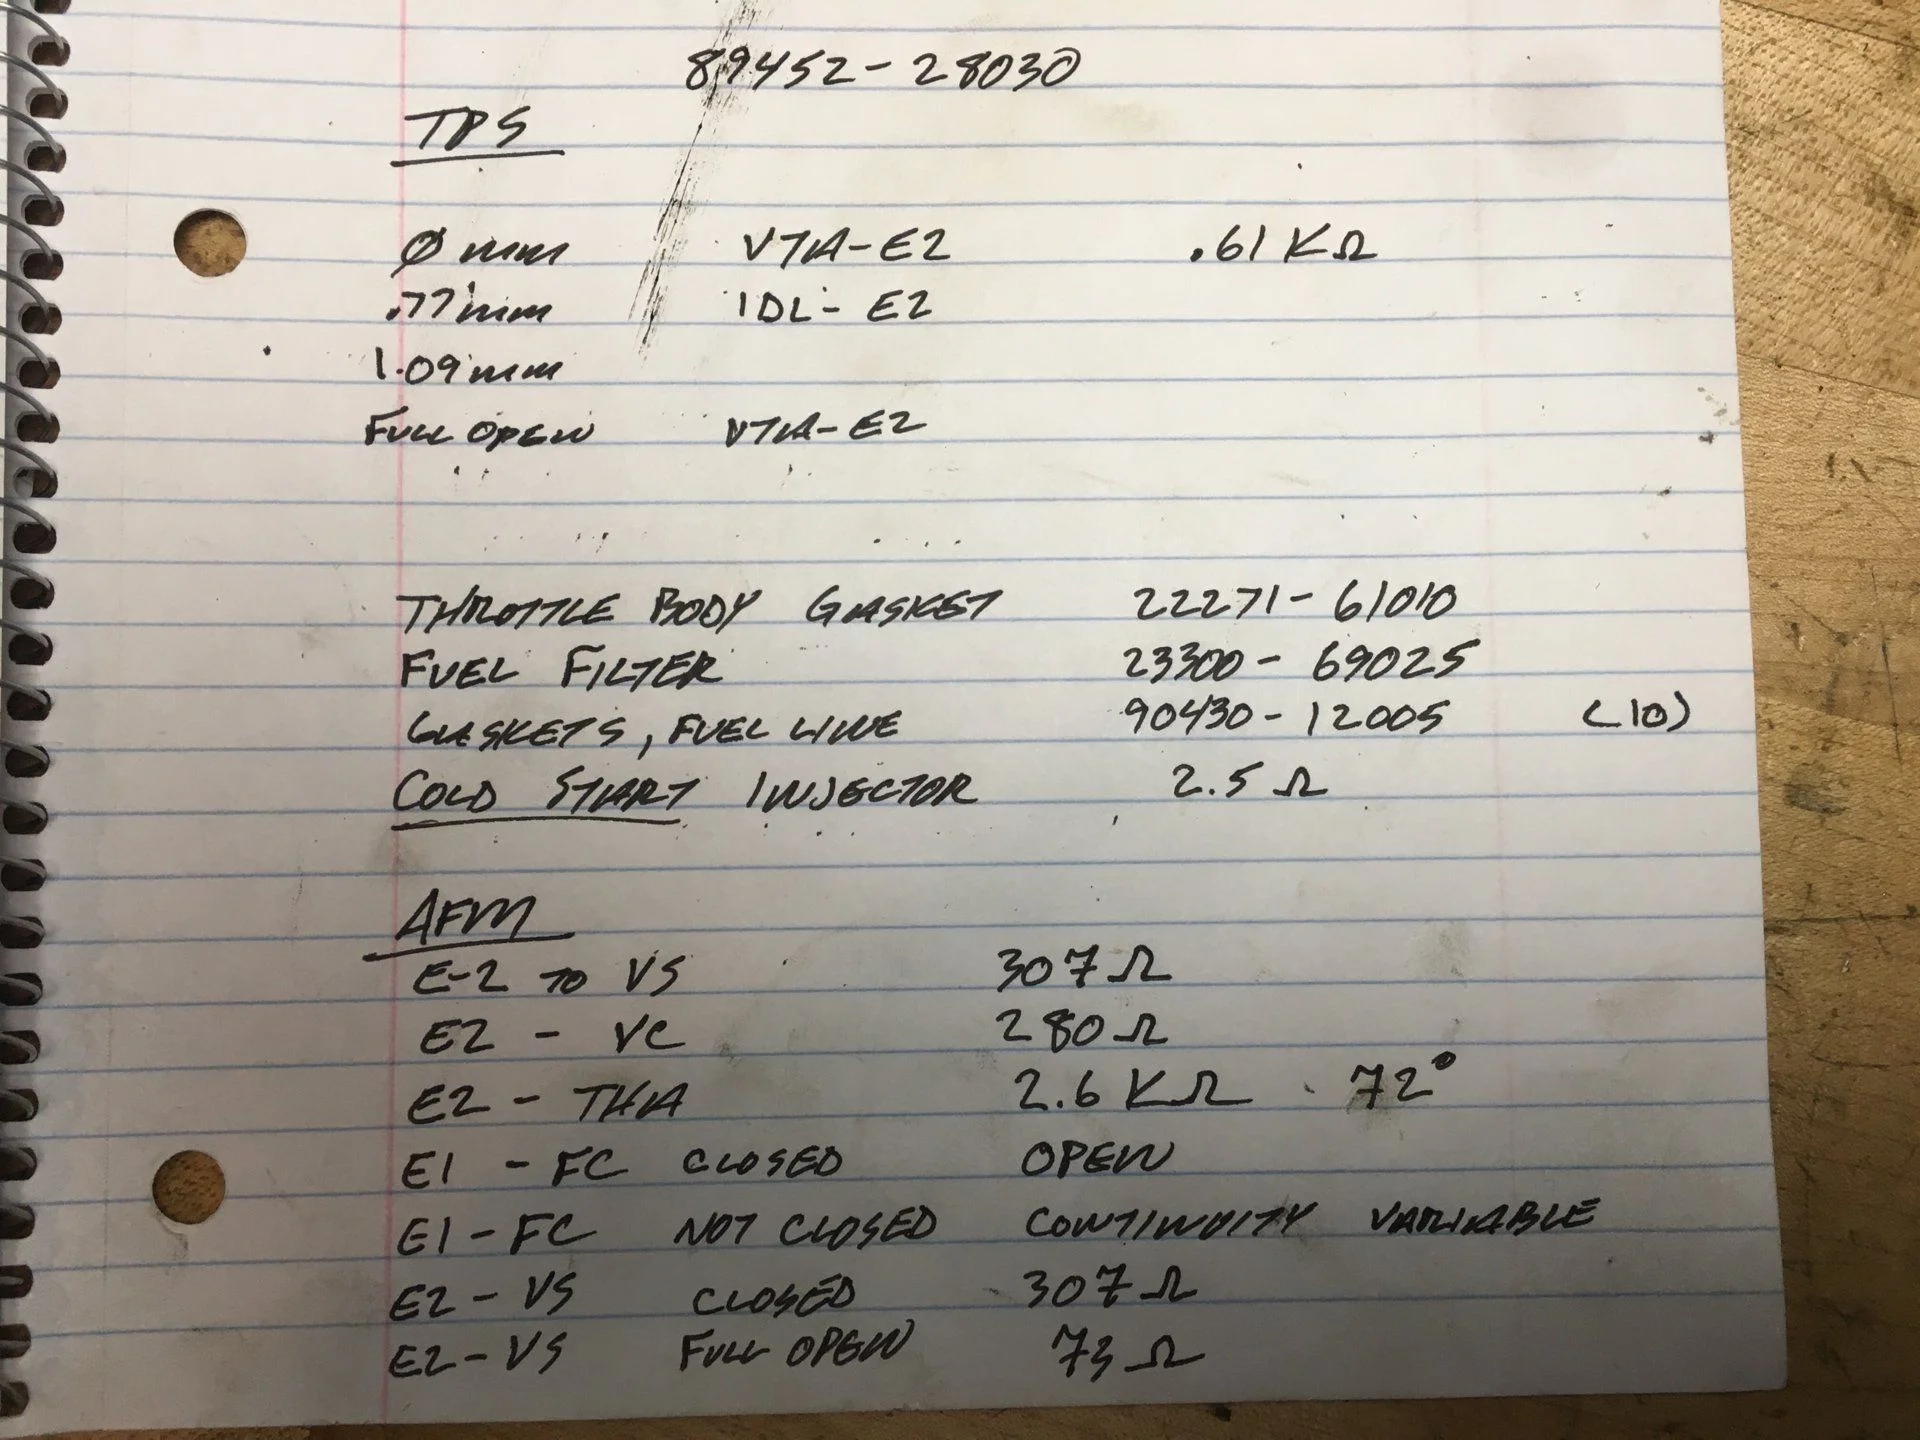 89452-28030
TPS
Ø mm VTA-E2 .61 KΩ
.77mm IDL-E2
1.09mm
FULL OPEN VTA-E2
THROTTLE BODY GASKET 22271-61010
FUEL FILTER 23300-69025
GASKETS, FUEL LINE 90430-12005 (10)
COLD START INJECTOR 2.5 Ω
AFM
E-2 TO VS 307Ω
E2 - VC 280Ω
E2 - THA 2.6 KΩ 72°
E1 - FC CLOSED OPEN
E1-FC NOT CLOSED CONTINUITY VARIABLE
E2-VS CLOSED 307Ω
E2-VS FULL OPEN 73Ω